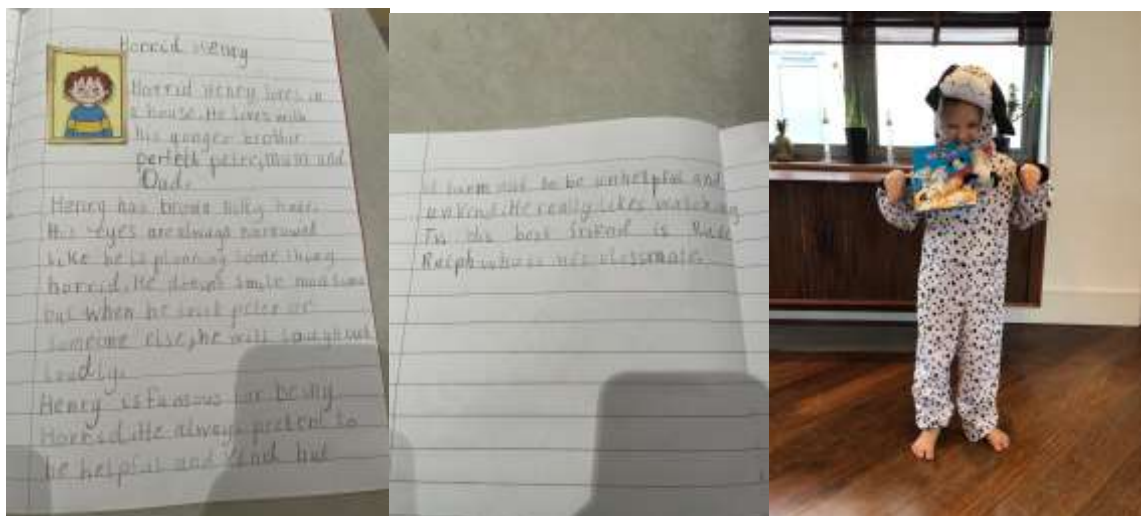 Horrid Henry
Horrid Henry lives in
a house. He lives with
his yonger brother
perfect peter, Mum and
Dad.
Henry has brown hair.
His eyes are always narrowed
like he is planning something
horrid. He doesnt smile
but when he peter or
someone else, he will laugh out
loudly.
Henry is famous for being
Horrid. He always pretent to
be helpful and kind but
out to be unhelpful and
unkind. He really likes watching
Tv. his best friend is Rude
Ralph who is his classmate.